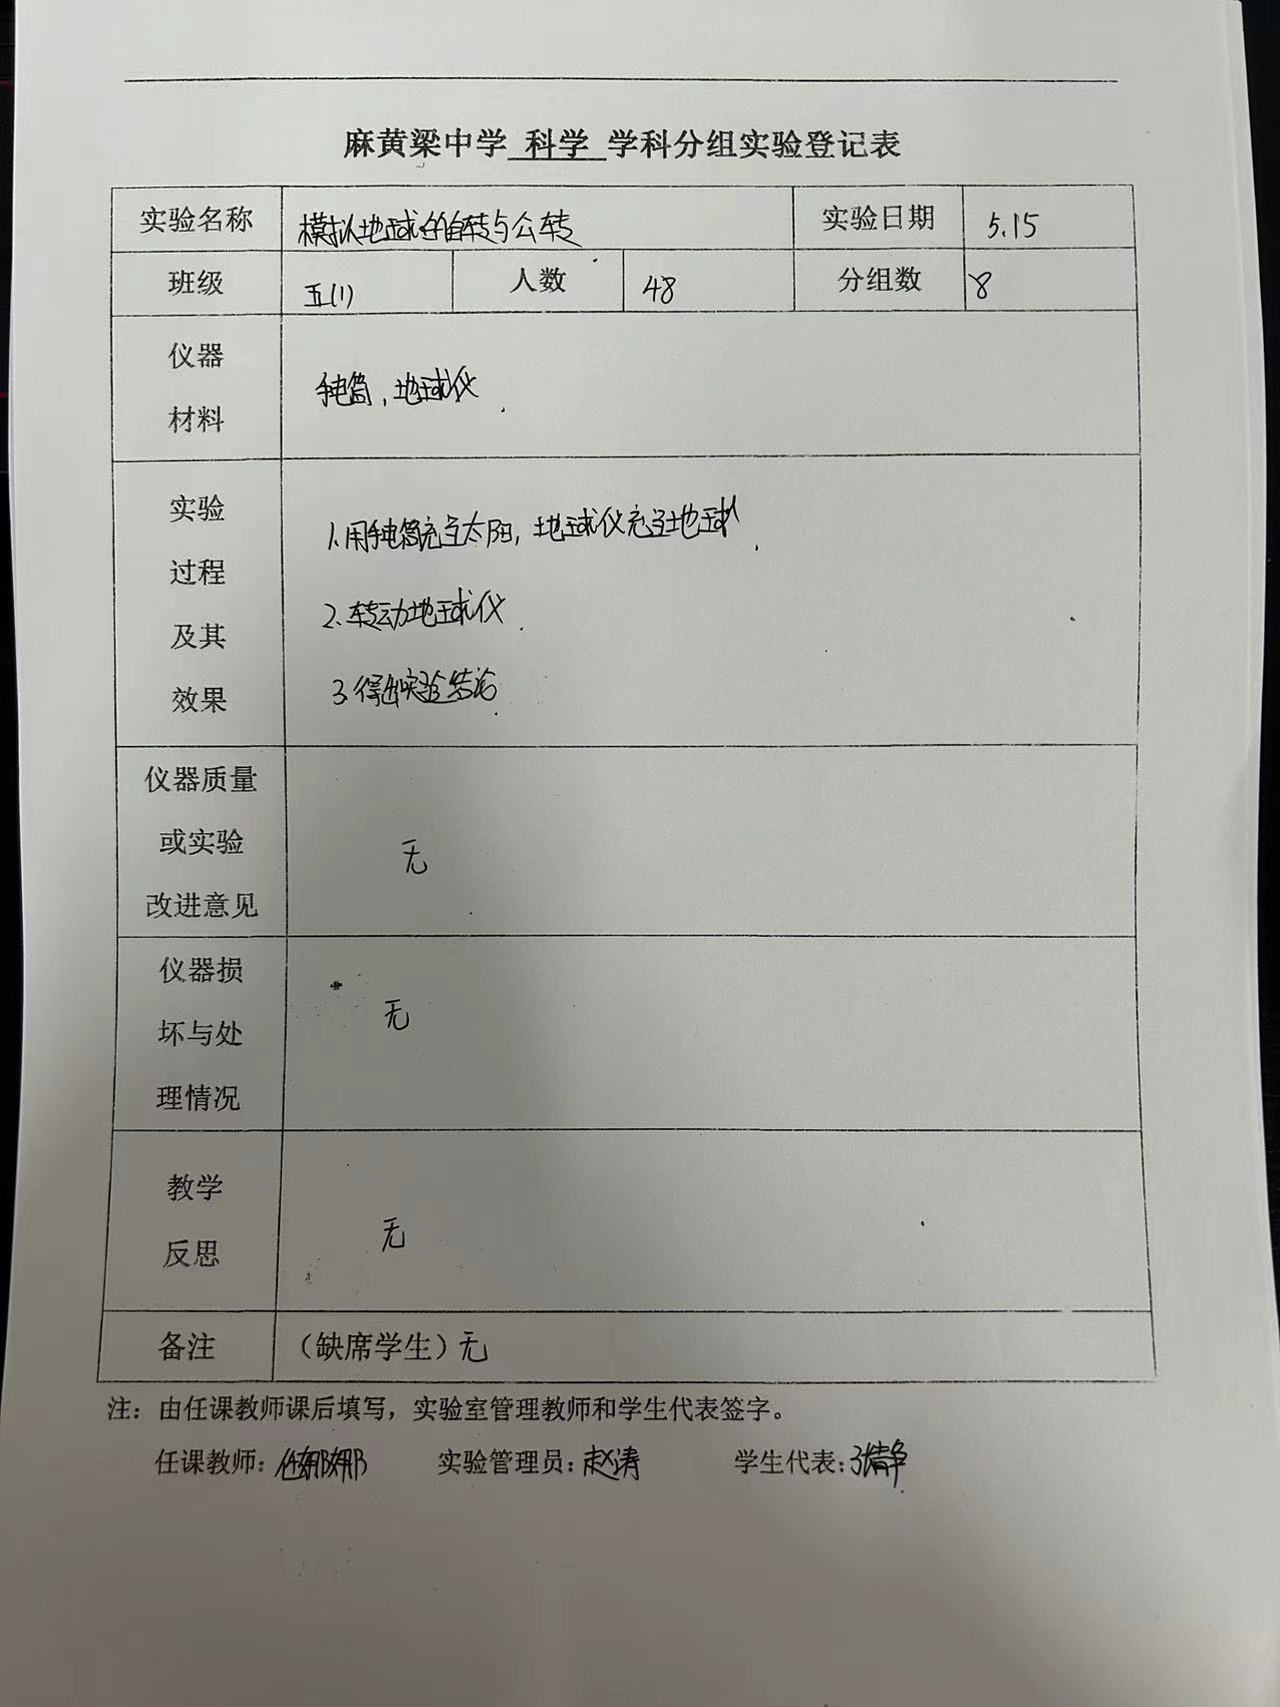 麻黄梁中学 科学 学科分组实验登记表
实验名称 模拟地球的自转与公转 实验日期 5.15
班级 五(1) 人数 48 分组数 8
仪器
材料
手电筒，地球仪.
实验
过程
及其
效果
1.用手电筒充当太阳，地球仪充当地球.
2.转动地球仪.
3.得出实验结论.
仪器质量
或实验
改进意见
无
仪器损
坏与处
理情况
无
教学
反思
无
备注 （缺席学生）无
注：由任课教师课后填写，实验室管理教师和学生代表签字。
任课教师：任娜娜 实验管理员：赵涛 学生代表：张静